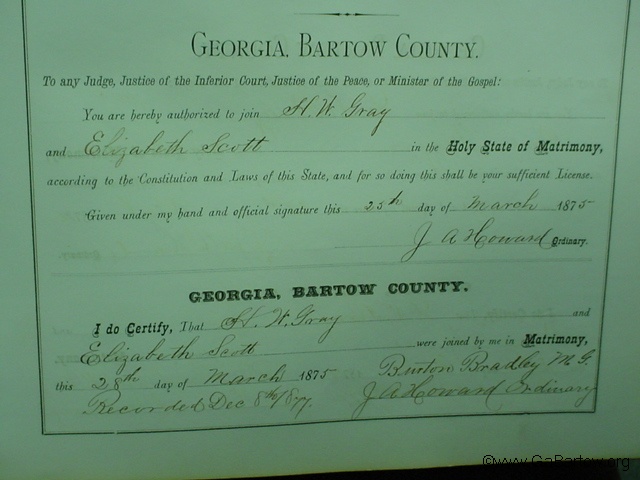 GEORGIA, BARTOW COUNTY.
To any Judge, Justice of the Inferior Court, Justice of the Peace, or Minister of the Gospel:
You are hereby authorized to join H. W. Gray
and Elizabeth Scott in the Holy State of Matrimony,
according to the Constitution and Laws of this State, and for so doing this shall be your sufficient License.
Given under my hand and official signature this 25th day of March 1875
J A Howard Ordinary.
GEORGIA, BARTOW COUNTY.
I do Certify, That H. W. Gray and
Elizabeth Scott were joined by me in Matrimony,
this 28th day of March 1875 Burton Bradley M G.
Recorded Dec 8th 1877. J A Howard Ordinary
©www.GaBartow.org